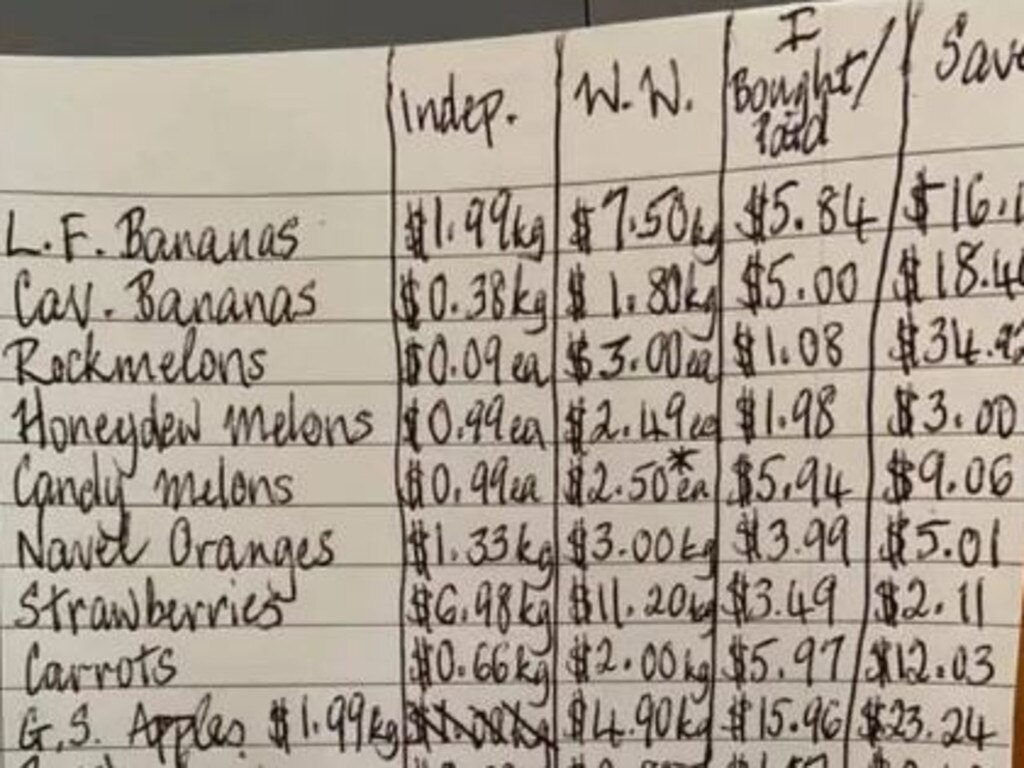 Indep. W.W. I Bought/Paid Save
L.F. Bananas $1.99kg $7.50kg $5.84 $16.1
Cav. Bananas $0.38kg $1.80kg $5.00 $18.4
Rockmelons $0.09ea $3.00ea $1.08 $34.92
Honeydew Melons $0.99ea $2.49ea $1.98 $3.00
Candy Melons $0.99ea $2.50*ea $5.94 $9.06
Navel Oranges $1.33kg $3.00kg $3.99 $5.01
Strawberries $6.98kg $11.20kg $3.49 $2.11
Carrots $0.66kg $2.00kg $5.97 $12.03
G.S. Apples $1.99kg $4.90kg $15.96 $23.24